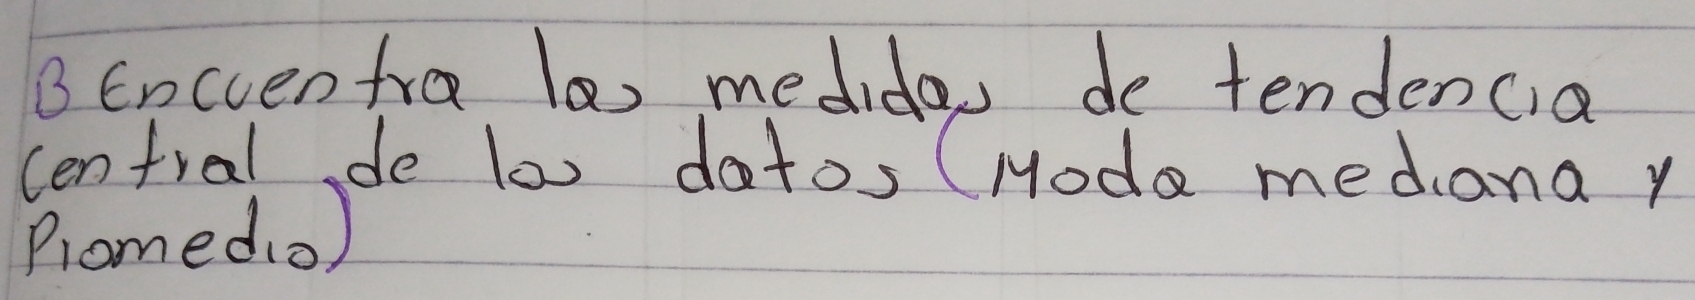 3 Encuentra las medidas de tendencia
central de los datos (Moda mediana y
Promedio)